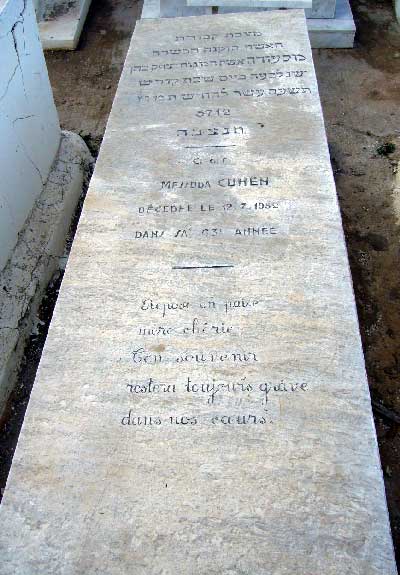 מצבת קבורת
האשה הזקנה הכשרה
תשעה עשר לחדש תמוז
5712
תנצבה
MESSODA COHEN
DÉCÉDÉE LE 12.7.1952
DANS SA 63E ANNÉE
Repose en paix
mère chérie.
Ton souvenir
restera toujours gravé
dans nos cœurs.